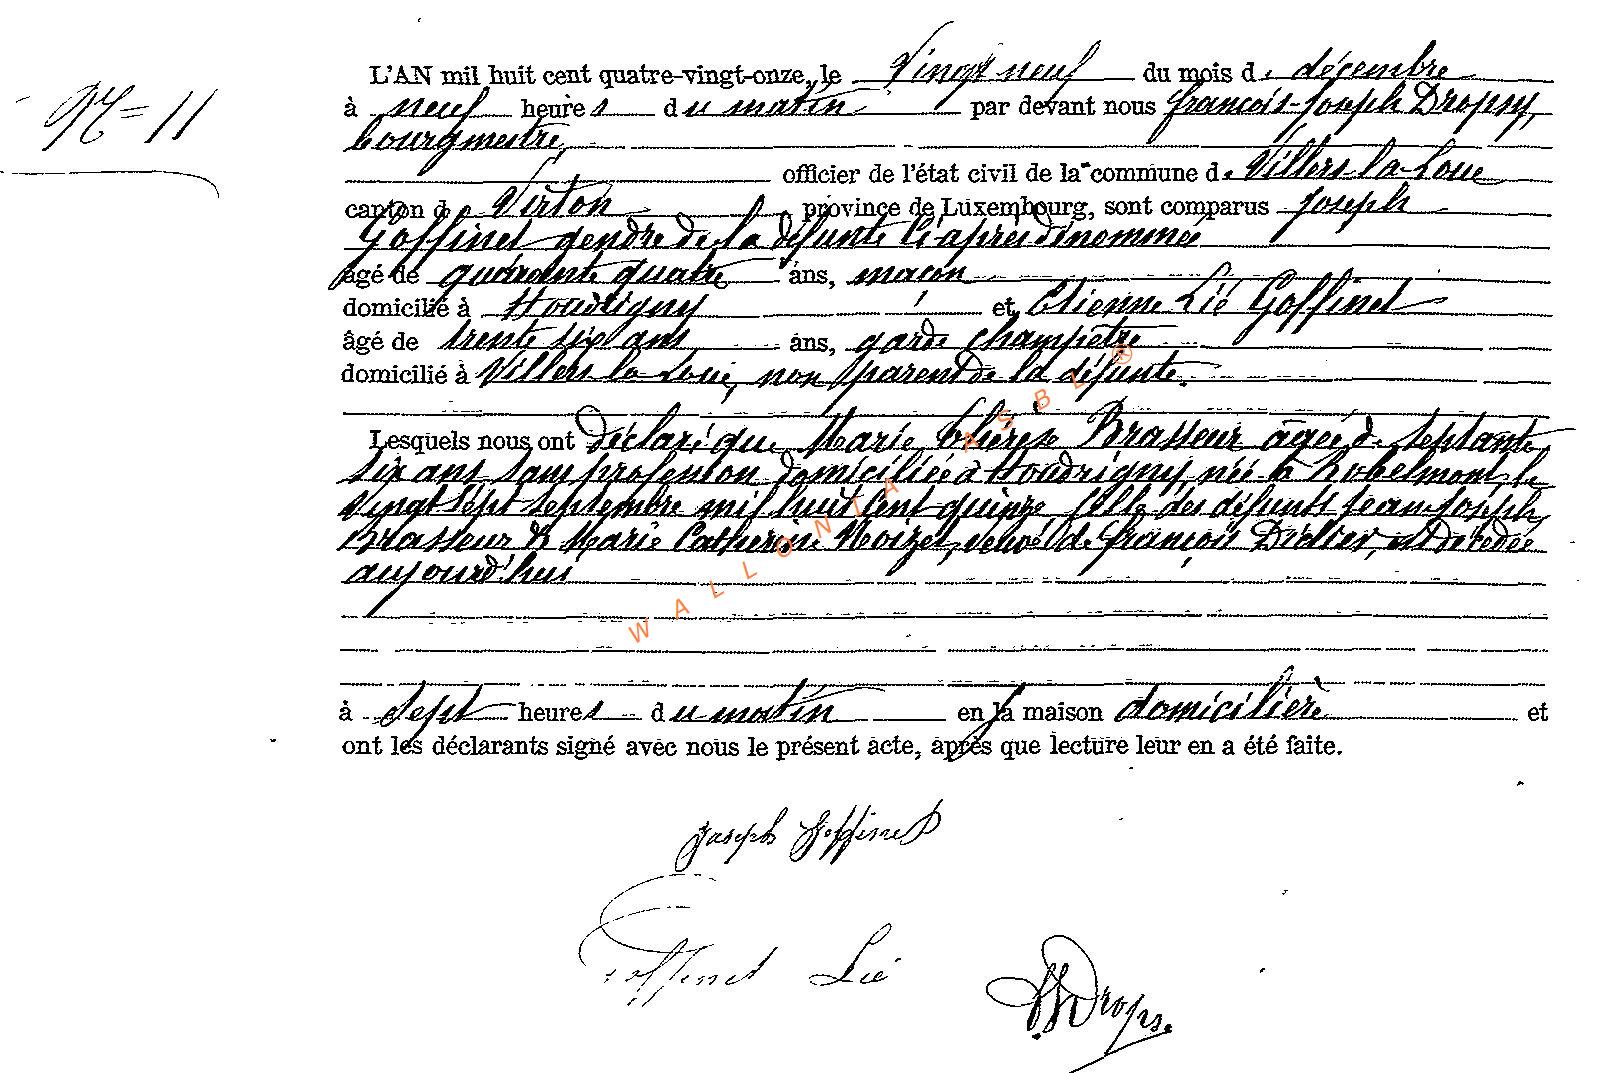 Nº 11
L'AN mil huit cent quatre-vingt-onze, le vingt neuf du mois de décembre
à neuf heures du matin par devant nous françois-Joseph Dropsy,
bourgmestre,
officier de l'état civil de la commune de Villers-la-Loue
canton de Virton province de Luxembourg, sont comparus Joseph
Goffinet gendre de la défunte ci-après dénommée
âgé de quarante quatre ans, maçon
domicilié à Houdrigny et Etienne Lié Goffinet
âgé de trente six ans ans, garde champêtre
domicilié à Villers la Loue, non parent de la défunte.
Lesquels nous ont déclaré que Marie Thérèse Brasseur âgée de septante
six ans sans profession domiciliée à Houdrigny, née à Robelmont, le
vingt sept septembre mil huit cent quinze fille des défunts Jean Joseph
Brasseur & Marie Catherine Noizet, veuve de françois Didier, est décédée
aujourd'hui
à sept heures du matin en sa maison domicilière et
ont les déclarants signé avec nous le présent acte, après que lecture leur en a été faite.
WALLONIA ASBL ®
Joseph Goffinet
Goffinet Lié
FJ Dropsy